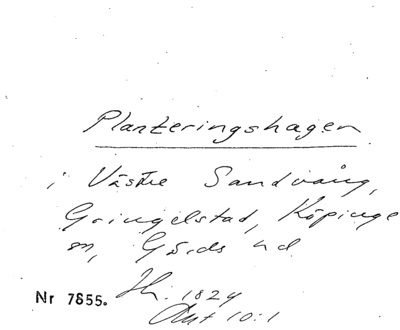 Planteringshagen
i Västre Sandvång,
Gringelstad, Köpinge
sn, Gärds hd.
Nr 7855. Hh. 1824
Akt 10:1